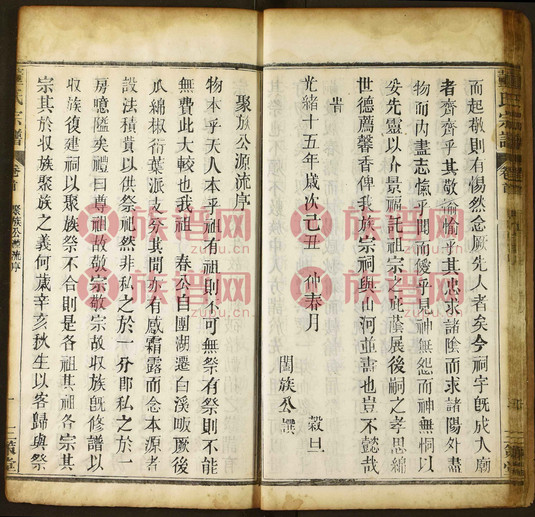 而起敬則有惕然念厥先人者矣今祠宇既成入廟
者齊齊乎其敬愉愉乎其忠求諸陰而求諸陽外盡
物而内盡志愾乎聞而僾乎見神無怨而神無恫以
妥先靈以介景福託祖宗之庇蔭展後嗣之孝思綿
世德薦馨香俾我族宗祠與山河並壽也豈不懿哉
旹
光緒十五年歲次己丑 仲春月 穀旦
闔族公譔
聚族公源流序
物本乎天人本乎祖有祖則不可無祭有祭則不能
無費此大較也我祖 春公自團湖遷白溪畈厥後
瓜綿椒衍葉派支分其間亦有感霜露而念本源者
設法積貲以供祭祀然非私之於一分即私之於一
房噫隘矣禮曰尊祖故敬宗敬宗故收族既修譜以
收族復建祠以聚族祭不合則是各祖其祖各宗其
宗其於收族聚族之義何歲辛亥秋生以客歸與祭
氏宗譜
卷首
聚族公源流序
一
堂
氏宗譜
卷首
堂
族谱网
zupu.cn
族谱网
zupu.cn
族谱网
zupu.cn
族谱网
zupu.cn